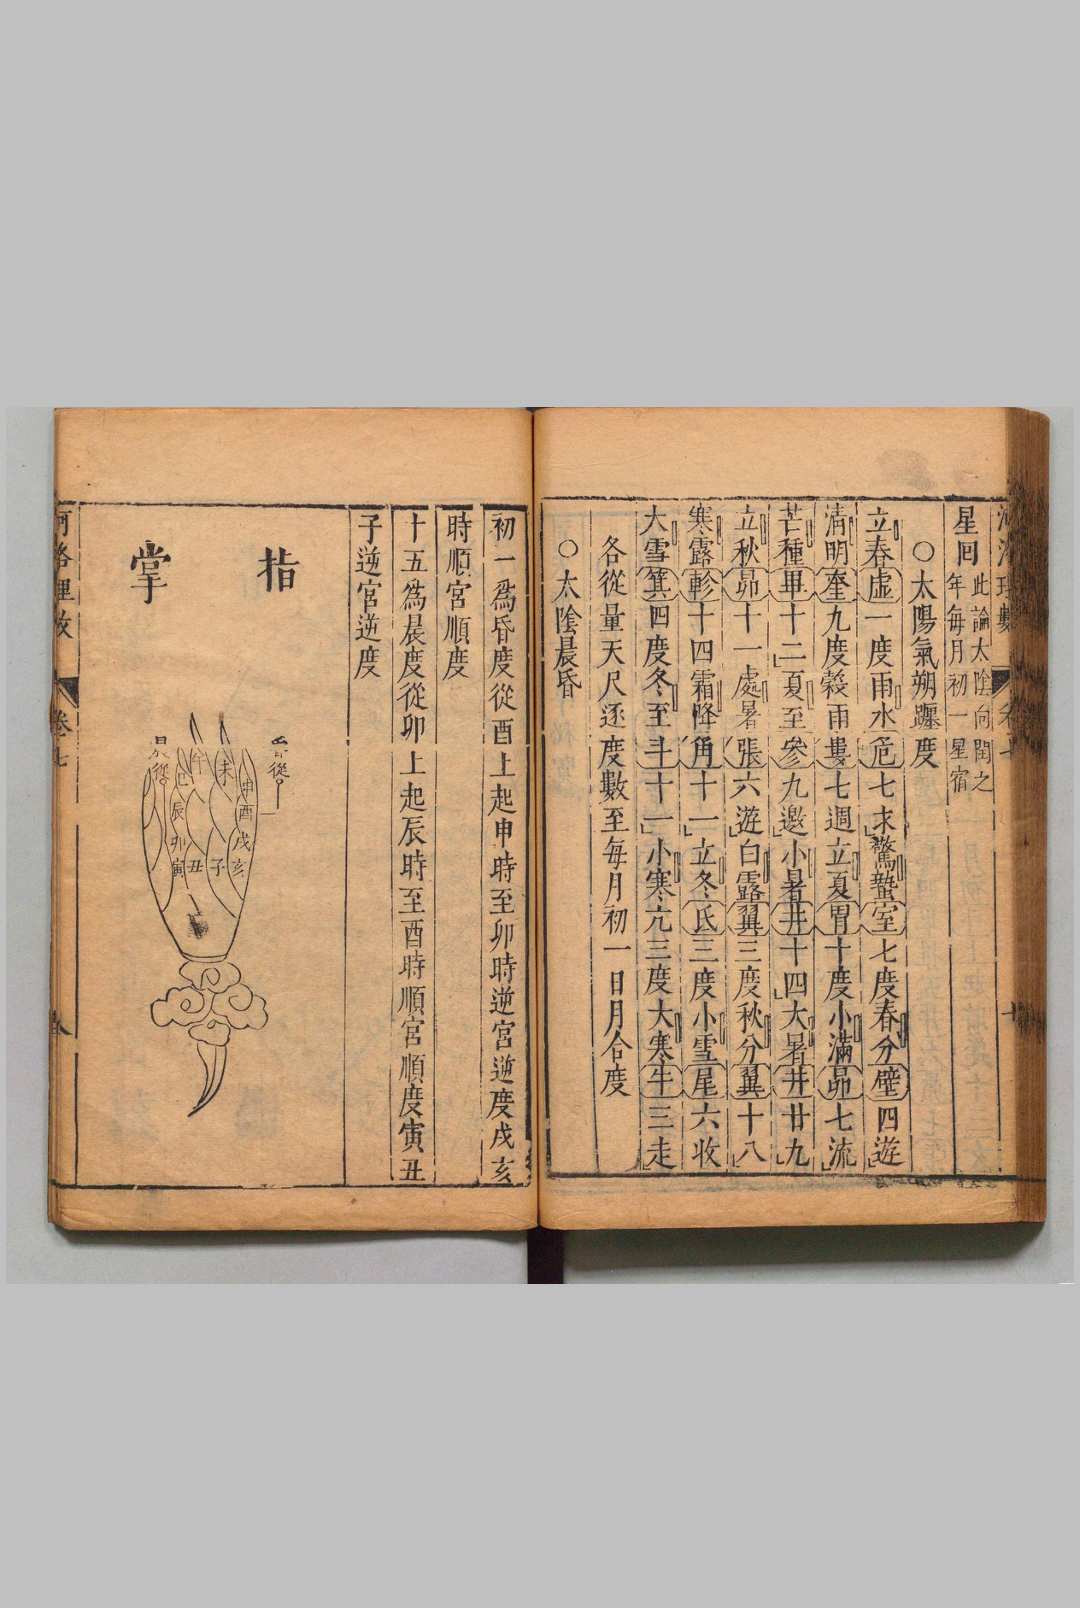 星回 此論太陰向閏之
年每月初一星宿
○太陽氣朔躔度
立春虛一度雨水危七末驚蟄室七度春分壁四遊
清明奎九度穀雨婁七週立夏胃十度小滿昴七流
芒種畢十二夏至參九邀小暑井十四大暑井廿九
立秋昴十一處暑張六遊白露翼三度秋分翼十八
寒露軫十四霜降角十一立冬氐三度小雪星六收
大雪箕四度冬至斗十一小寒亢三度大寒牛三走
各從量天尺逐度數至每月初一日月合度
○太陰晨昏
初一爲昏度從酉上起申時至卯時逆宮逆度戌亥
時順宮順度
十五爲晨度從卯上起辰時至酉時順宮順度寅丑
子逆宮逆度
指掌
昏從
申
酉
戌
亥
未
子
午
丑
巳
辰
卯
寅
河洛理數
卷七